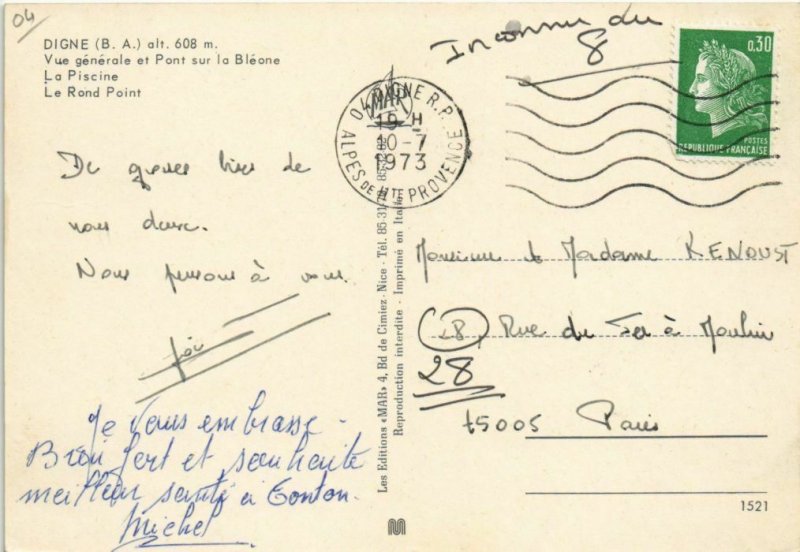 04
DIGNE (B. A.) alt. 608 m.
Vue générale et Pont sur la Bléone
La Piscine
Le Rond Point
Inconnu du
8
0,30
POSTES
REPUBLIQUE FRANÇAISE
04 DIGNE R.P.
19 H
10-7
1973
ALPES DE HTE PROVENCE
De grosses bises de
nous deux.
Nous pensons à vous
Je vous embrasse
Bien fort et souhaite
meilleur santé à Tonton
Michel
Les Editions «MAR» 4, Bd de Cimiez - Nice - Tél. 85-31
Reproduction interdite - Imprimé en Italie
MAR
Monsieur et Madame KENOUST
28, Rue du Fer à Moulin
28
75005 Paris
1521